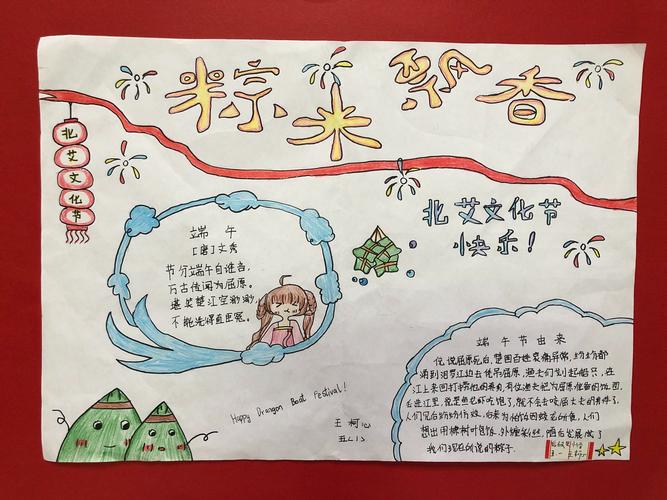 粽米飘香
北艾文化节
北艾文化节
快乐!
端 午
[唐]文秀
节分端午自谁言,
万古传闻为屈原。
堪笑楚江空渺渺,
不能洗得直臣冤。
Happy Drangon Boat Festival!
王柯心
端午节由来
传说屈原死后,楚国百姓哀痛异常,纷纷都
涌到汨罗江边去凭吊屈原,渔夫们划起船只,在
江上来回打捞他的真身,有位渔夫把为屈原准备的饭团,
丢进江里,说是鱼龙虾吃饱了,就不会去咬屈大夫的身体了。
人们见后纷纷仿效,后来为怕饭团蛟龙所食,人们
想出用楝树叶包饭,外缠彩丝,随后发展成了
我们现在所说的粽子。